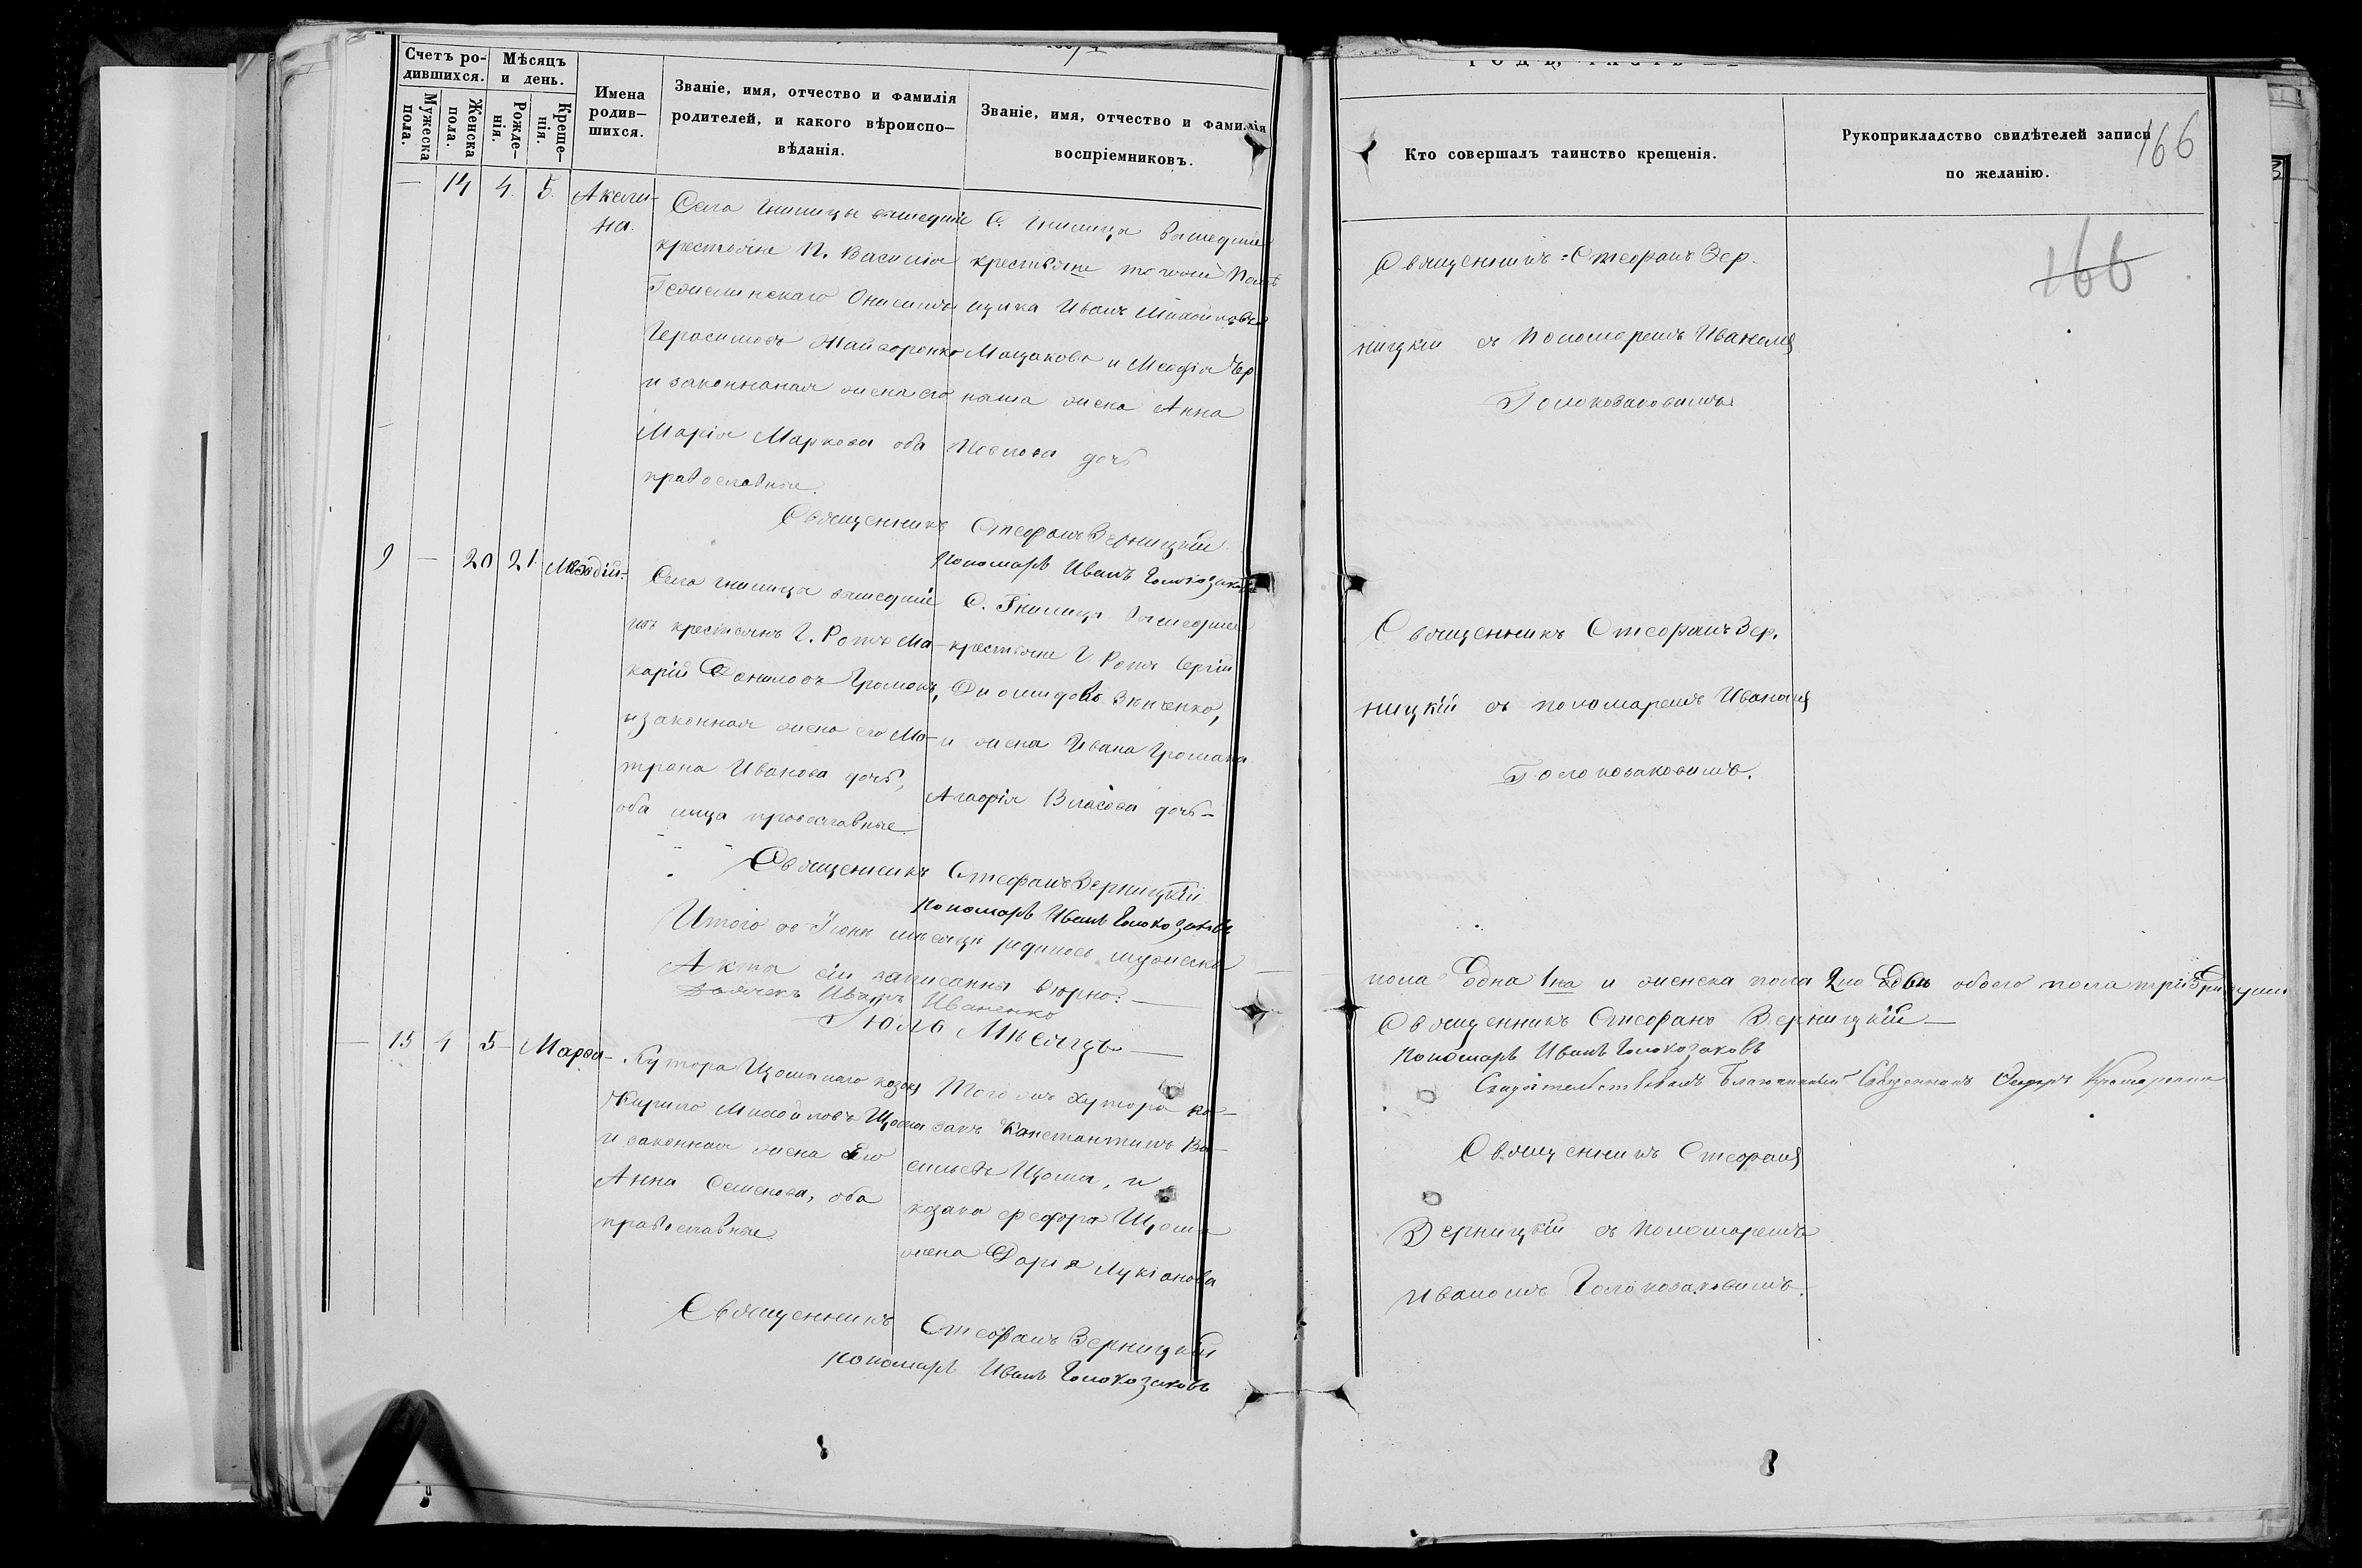 Счетъ ро-
дившихся.
Мѣсяцъ
и день.
Мужеска
пола.
Женска
пола.
Рожде-
нія.
Креще-
нія.
Имена
родив-
шихся.
Званіе, имя, отчество и фамилія
родителей, и какого вѣроиспо-
вѣданія.
Званіе, имя, отчество и фамилія
воспріемниковъ.
— 14 4. 5. Акили-
на.
Села Гнилицы вышедшіе
крестьяне П. Василія
Онисимъ
Герасимовъ Майборенко
и законная жена его
Марія Маркова оба
православные.
С. Гнилицы вышедшіе
крестьяне
Иванъ Михайловъ
Мацаковъ и
жена Анна
Павлова дочь
Священникъ Стефанъ Верницкій
Пономарь Иванъ Голокозаковъ
9 — 20 21.
Села Гнилицы вышедшіе
изъ крестьянъ Г. Ротъ Ма-
карій Даниловъ Громакъ,
и законная жена его Ма-
трона Иванова дочь,
оба лица православные.
С. Гнилицы вышедшіе
крестьяне Г. Ротъ Сергій
Диомидовъ Зинченко,
и жена Ивана Громака
Агафія Власова дочь—
Священникъ Стефанъ Верницкій
Пономарь Иванъ Голокозаковъ
Итого въ Іюнѣ мѣсяцѣ родилось мужеска
Акты сіи записанны вѣрно:—
Иванъ Иваненко
Іюль Мѣсяцъ—
— 15 4 5— Марфа—
Хутора козакъ
Кирило Михайловъ Щома
и законная жена Его
Анна Семенова, оба
православные.
Того жъ хутора ко-
закъ Константинъ Ва-
сильевъ Щома, и
козака Федора Щомы
жена Дарія Лукіанова
Священникъ Стефанъ Верницкій
Пономарь Иванъ Голокозаковъ
Кто совершалъ таинство крещенія.
Рукоприкладство свидѣтелей записи
по желанію.
166
166
Священникъ Стефанъ Вер-
ницкій съ Пономаремъ Иваномъ
Голокозаковымъ.
Священникъ Стефанъ Вер-
ницкій съ пономаремъ Иваномъ
Голокозаковымъ.
пола Една 1на и женска пола обоего пола три
Священникъ Стефанъ Верницкій—
Пономарь Иванъ Голокозаковъ
Свидѣтельствовалъ Благочинный Священникъ
Священникъ Стефанъ
Верницкій съ Пономаремъ
Иваномъ Голокозаковымъ.